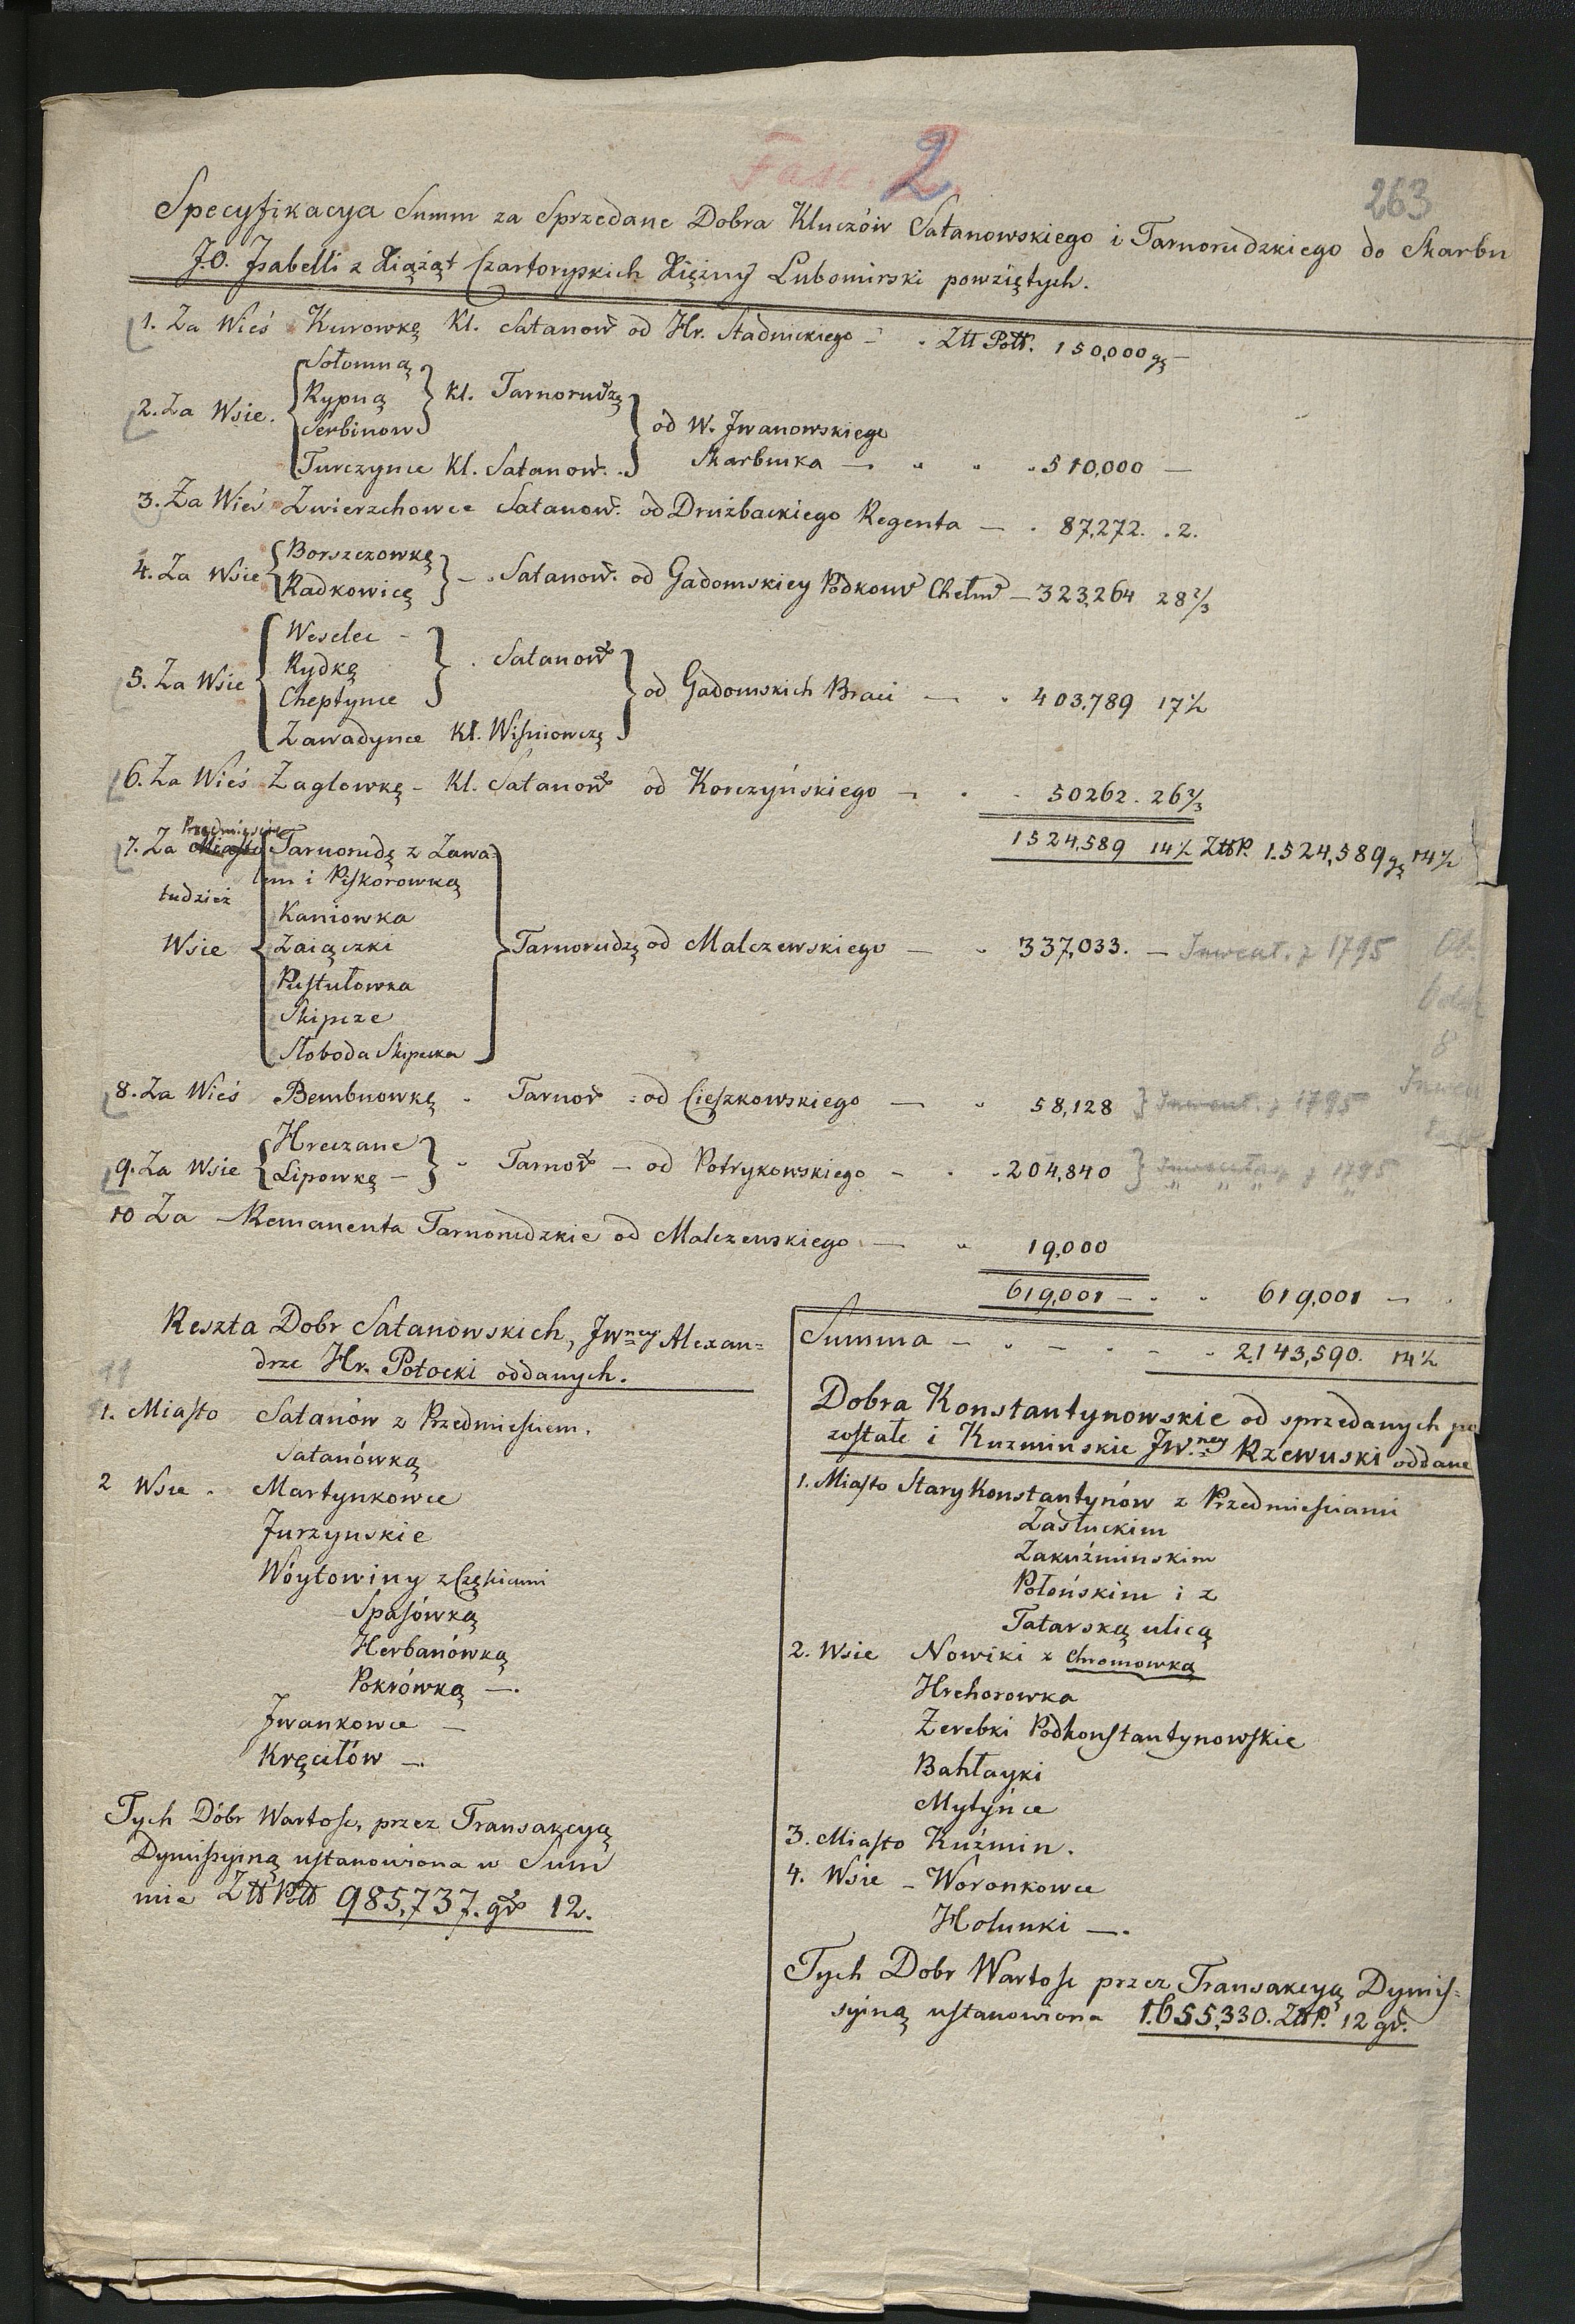 Fasc. 2.
263
Specyfikacya Summ za Sprzedane Dobra Kluczów Satanowskiego i Tarnorudzkiego do Skarbu
J.O. Jsabelli z Xiąząt Czartoryskich Xiężny Lubomirski powziętych.
1. Za Wieś Kurowkę Kl. Satanow od Hr. Stadnickiego — Ztt Poll. 150,000 gę —
2. Za Wsie. Sołomną
Rypną Kl. Tarnorudzę
Serbinow od W. Jwanowskiego
Turczynce Kl. Satanow. Skarbnika — 510,000 —
3. Za Wieś Zwierzchowce Satanow. od Drużbackiego Regenta — 87,272. 2.
4. Za Wsie Borszczowkę
Radkowicę — Satanow. od Gadomskiey Podkom Chełm — 323,264 28 2/3
5. Za Wsie Weselec —
Rydkę Satanow
Cheptynce od Gadomskich Braci — 403,789 17½
Zawadynce Kl. Wiśniowczę
6. Za Wieś Zaglowkę — Kl. Satanow od Korczyńskiego — 50262. 26 2/3
1524,589 14½ Ztt P. 1.524,589 gę 14½
Przedmieście
7. Za Miasto Tarnorudę z Zawa
lem i Piskorowką
tudzież Kaniowka
Wsie Zaiączki Tarnorudzę od Malczewskiego — 337,033. — Inwent. z 1795
Pustułowka
Skipcze
Słoboda Skipecka
8. Za Wieś Bembnowkę Tarnor od Cieszkowskiego — 58,128 Inwent. z 1795
9. Za Wsie Hreczane
Lipowkę — Tarnor — od Potrykowskiego — 204,840 1795
10 Za Remanenta Tarnorudzkie od Malczewskiego — 19,000
619,001 — 619,001 —
Summa — 2,143,590. 14½
Reszta Dobr Satanowskich, Jwney Alexan=
drze Hr. Potocki oddanych.
1. Miasto Satanów z Przedmieściem.
Satanówką
2 Wsie Martynkowce
Jurzynskie
Wóytowiny z Częściami
Spasówką
Herbanówką
Pokrówką —.
Jwankowce —
Kręciłów —.
Tych Dóbr Wartość, przez Transakcyą
Dymissyiną ustanowiona w Sum
mie Ztt Poll 985,737. gr 12.
Dobra Konstantynowskie od sprzedanych po
zostałe i Kuzminskie JW.ney Rzewuski oddane
1. Miasto Stary Konstantynów z Przedmieściami
Zasłuckim
Zakuźminskim
Połońskim i z
Tatarską ulicą
2. Wsie Nowiki z Chromowką
Hrehorowka
Zerebki Podkonstantynowskie
Bahłayki
Mytyńce
3. Miasto Kuźmin.
4. Wsie — Woronkowce
Hołunki —.
Tych Dobr Wartość przez Transakcyą Dymis=
syiną ustanowiona 1.655,330. Ztt P. 12 gr.